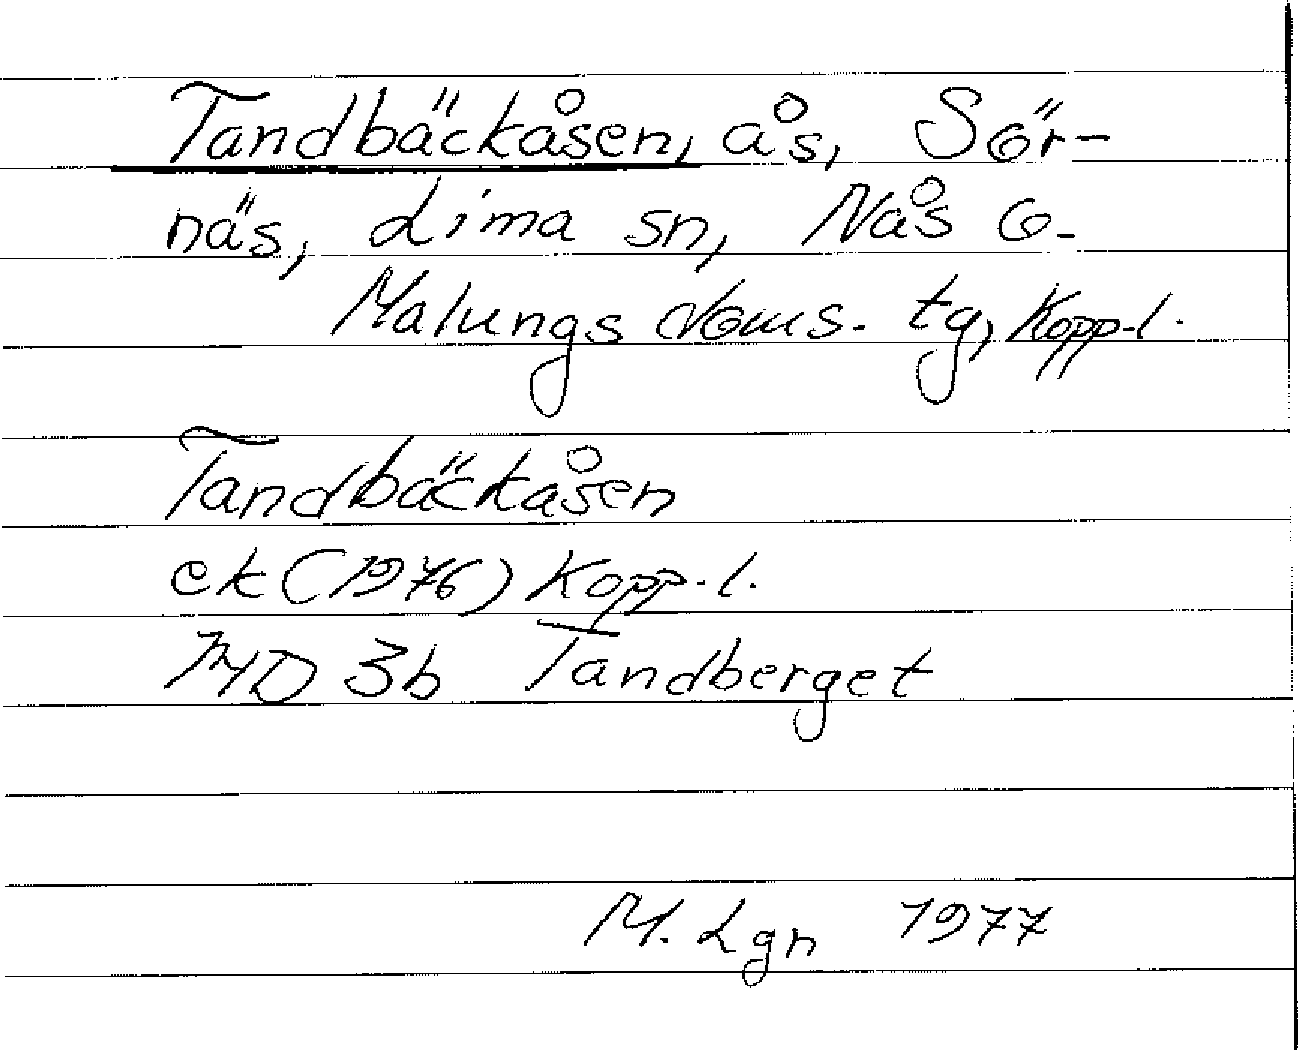 Tandbäckåsen, ås, Sör-
näs, Lima sn, Nås o.
Malungs doms. tg, Kopp. l.
Tandbäckåsen
ek (1976) Kopp. l.
13D 3b Tandberget
M. Lgn 1977